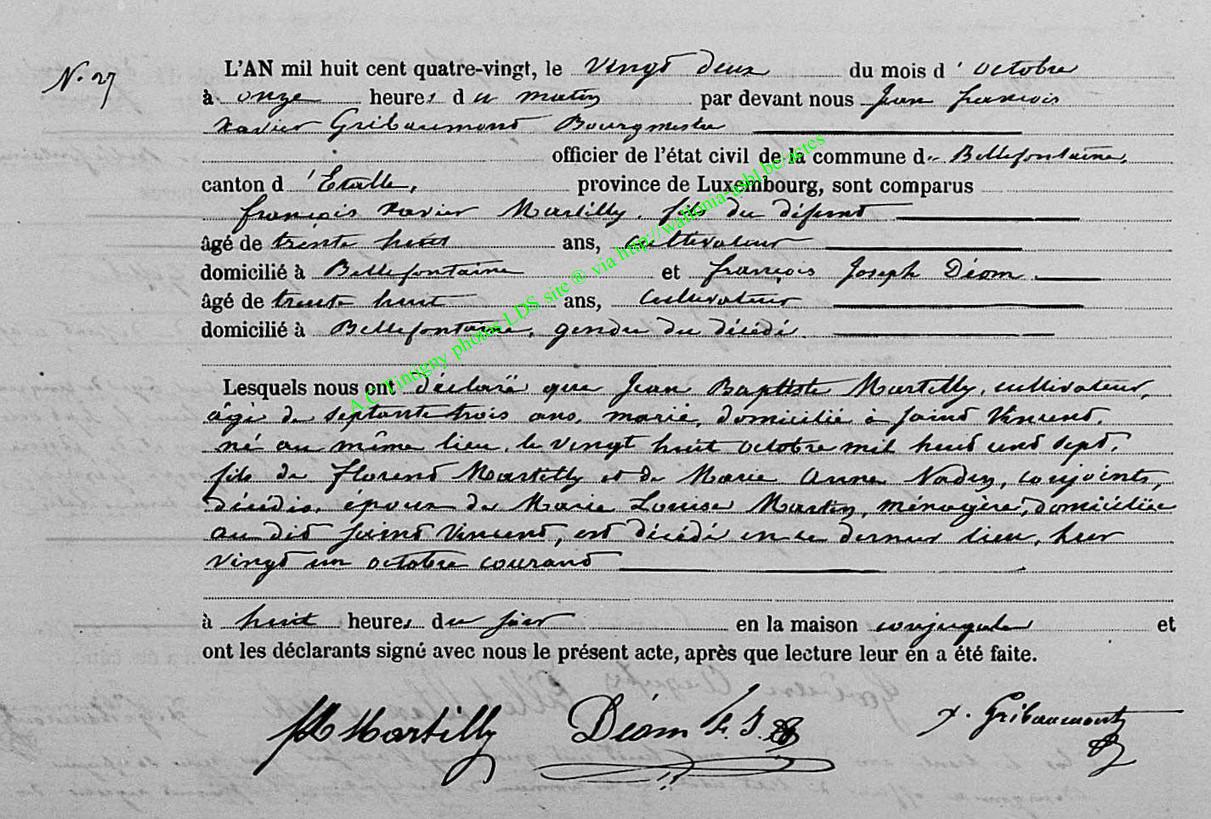 N. 27
L'AN mil huit cent quatre-vingt, le vingt deux du mois d'octobre
à onze heures du matin par devant nous Jean françois
xavier Gribaumont Bourgmestre
officier de l'état civil de la commune de Bellefontaine,
canton d'Etalle, province de Luxembourg, sont comparus
françois xavier Martilly, fils du défunt
âgé de trente huit ans, cultivateur
domicilié à Bellefontaine et françois Joseph Déom
âgé de trente huit ans, cultivateur
domicilié à Bellefontaine, gendre du décédé
Lesquels nous ont déclaré que Jean Baptiste Martilly, cultivateur,
âgé de septante trois ans, marié, domicilié à Saint Vincent,
né au même lieu, le vingt huit octobre mil huit cent sept,
fils de florent Martilly et de Marie Anne Nadin, conjoints,
décédés, époux de Marie Louise Martin, ménagère, domiciliée
au dit Saint Vincent, est décédé en ce dernier lieu, hier
vingt un octobre courant
à huit heures du soir en la maison conjugale et
ont les déclarants signé avec nous le présent acte, après que lecture leur en a été faite.
Martilly Déom F. J. x. Gribaumont
photos LDS site ® via http://wallonia-asbl.be/actes